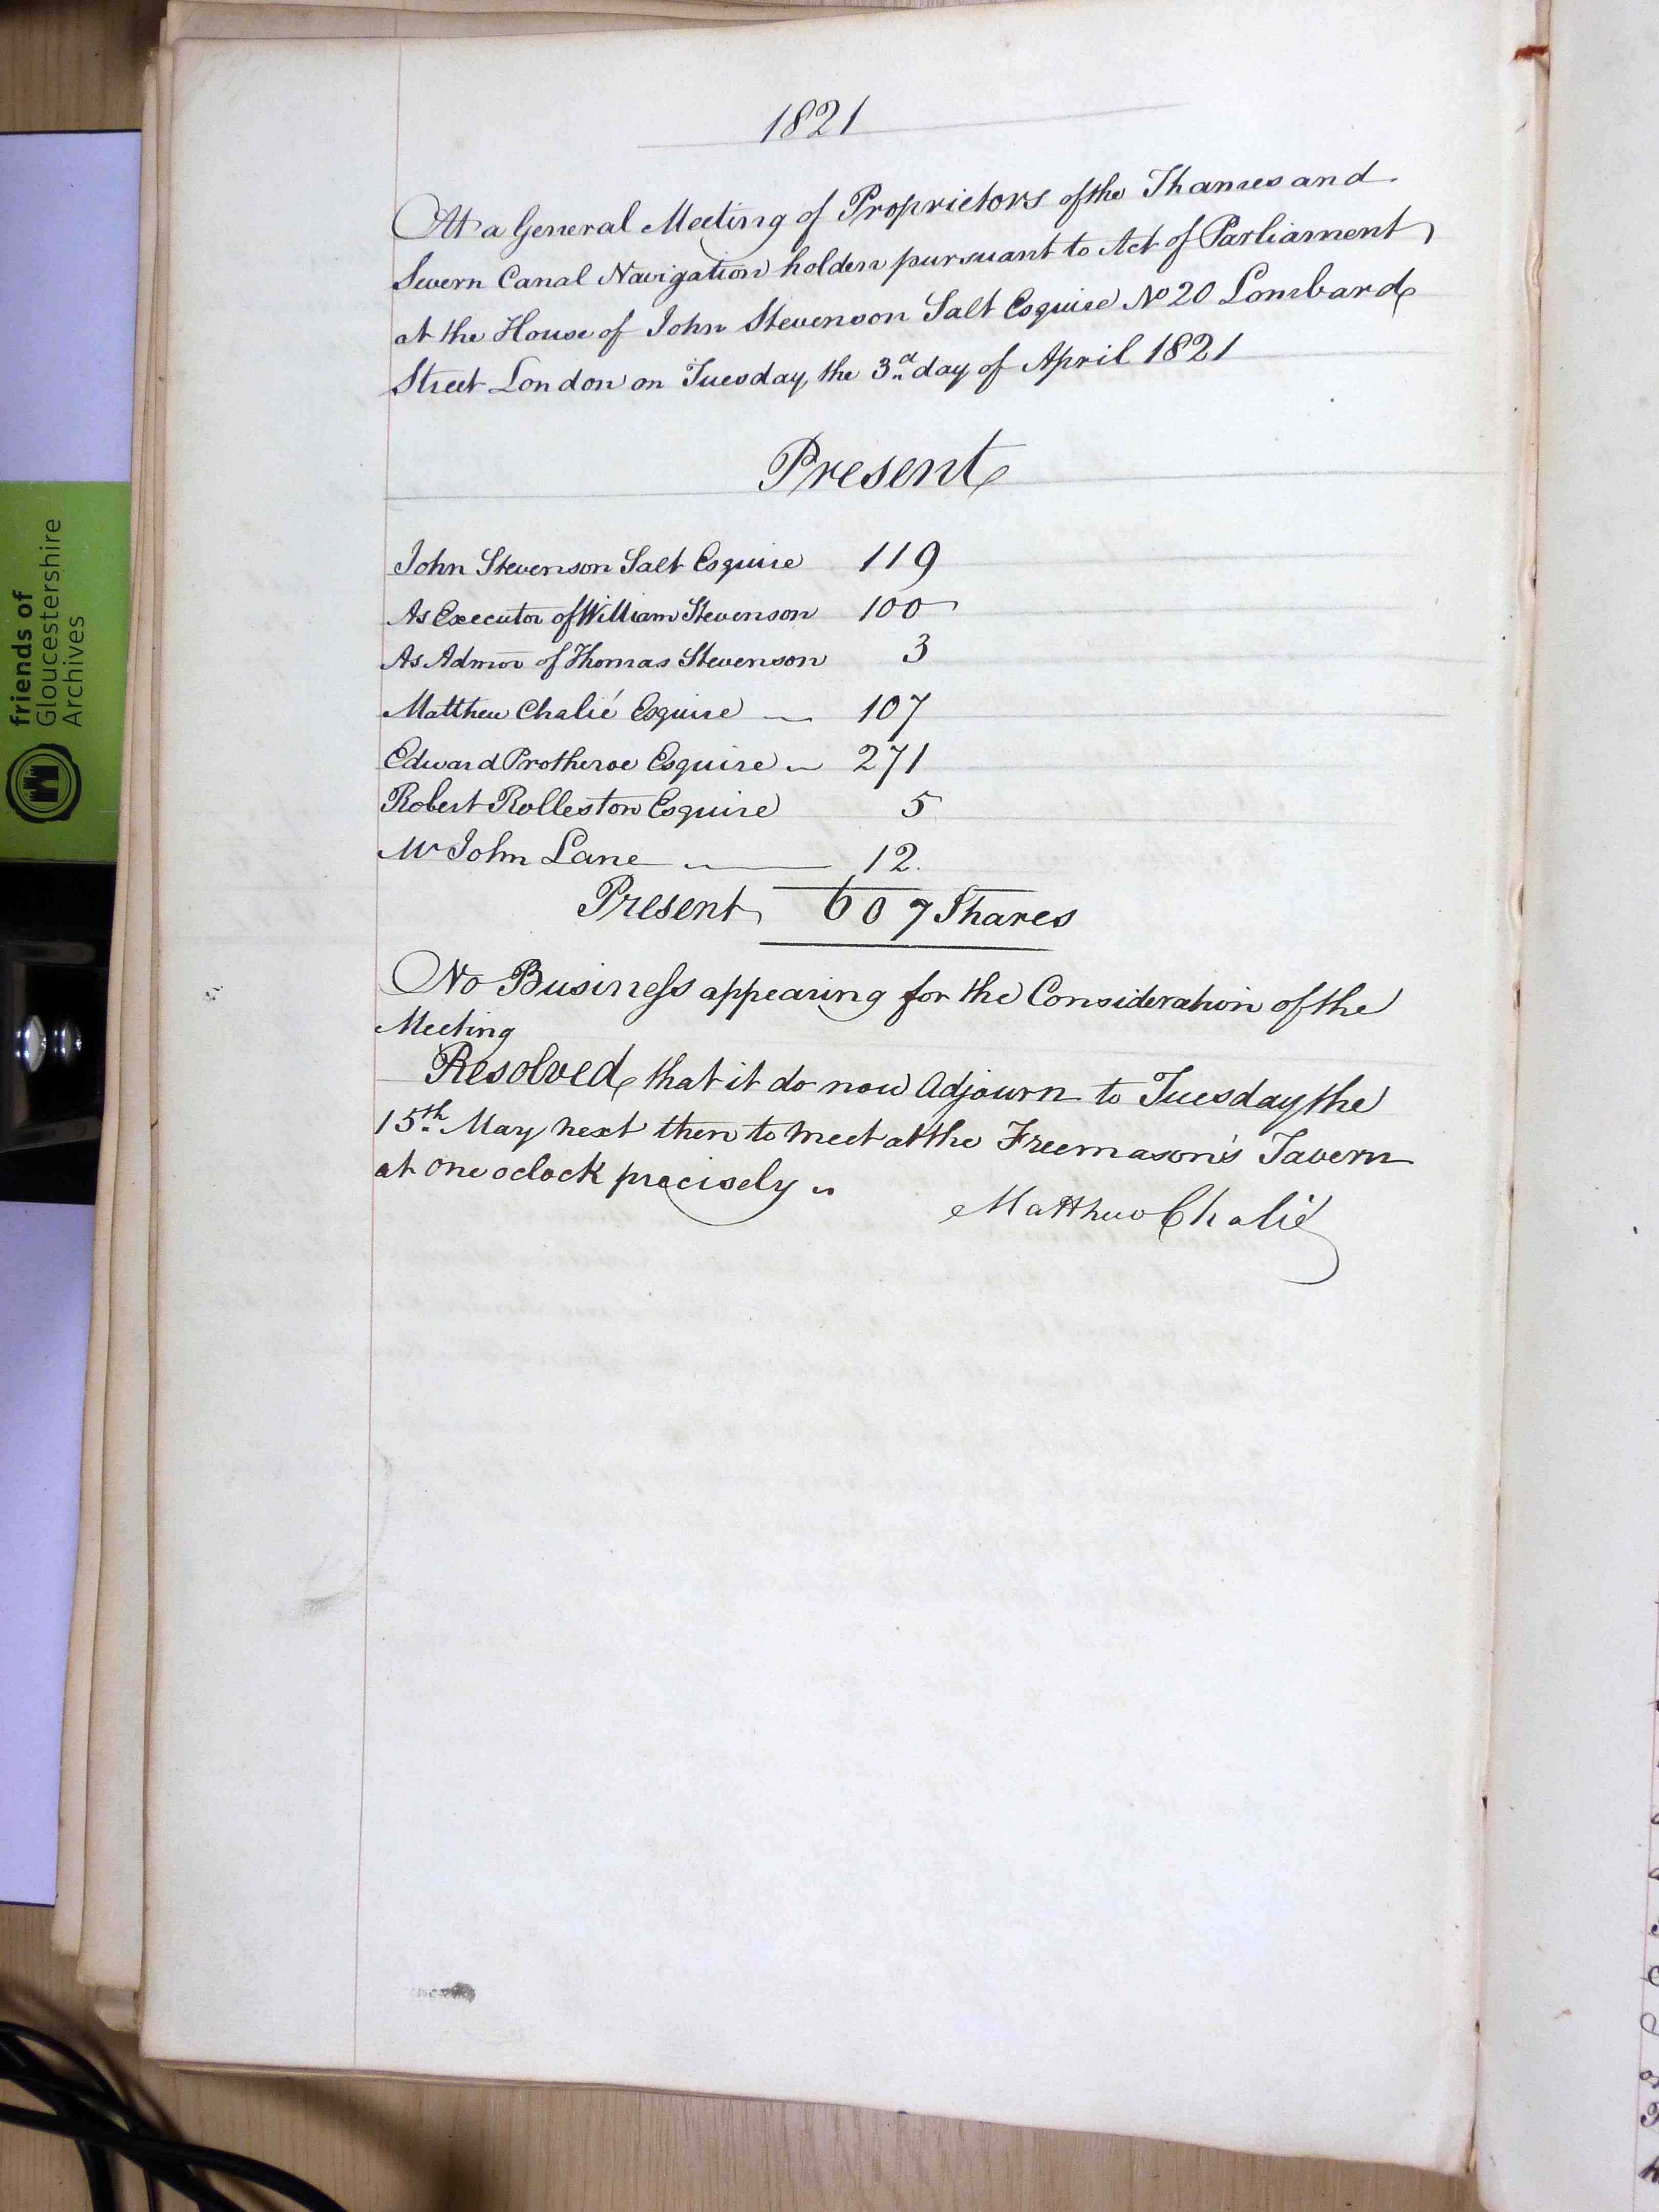 1821
At a General Meeting of Proprietors of the Thames and
Severn Canal Navigation holden pursuant to Act of Parliament
at the House of John Stevenson Salt Esquire No 20 Lombard
Street London on Tuesday, the 3rd day of April 1821
Present
John Stevenson Salt Esquire 119
As Executor of William Stevenson 100
As Admor of Thomas Stevenson 3
Matthew Chalié Esquire 107
Edward Protheroe Esquire 271
Robert Rolleston Esquire 5
Mr John Lane 12
Present 607 Shares
No Business appearing for the Consideration of the
Meeting
Resolved that it do now Adjourn to Tuesday the
15th May next then to meet at the Freemason's Tavern
at one oclock precisely
Matthew Chalié
friends of
Gloucestershire
Archives